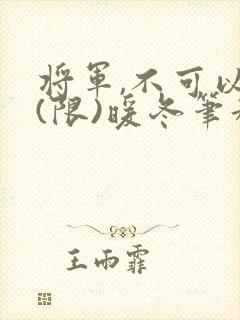 将軍,不可以
(限)暖冬筆
王雨霏